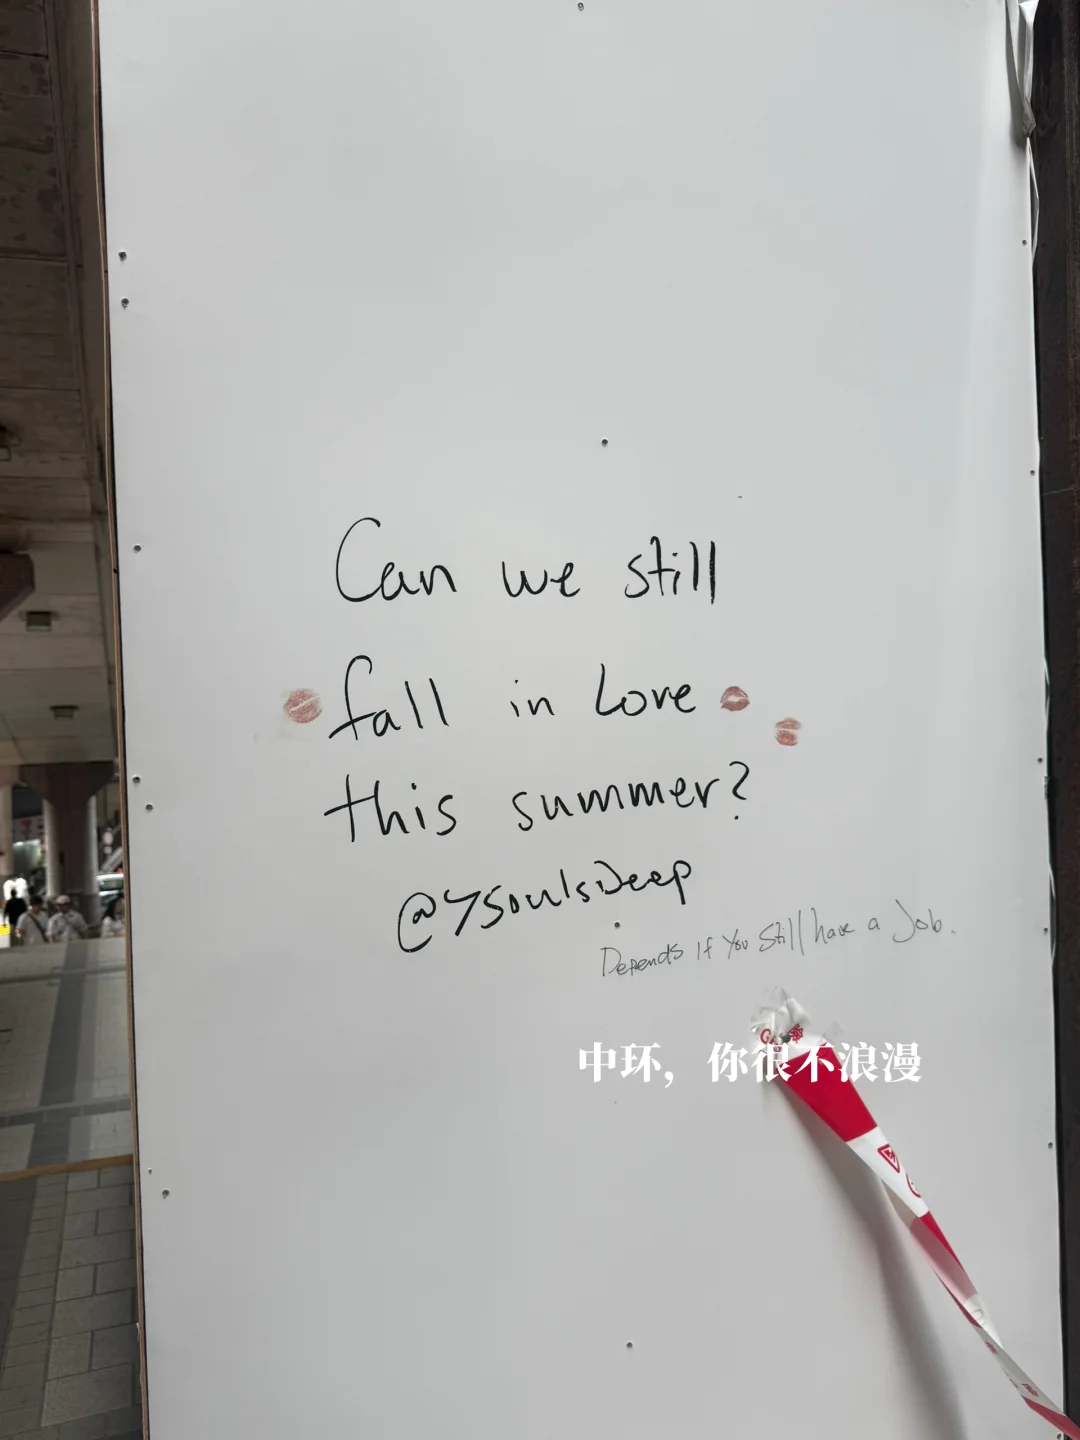 Can we still
fall in Love
this summer?
@7SoulsDeep
Depends If You Still have a Job.
中环，你很不浪漫